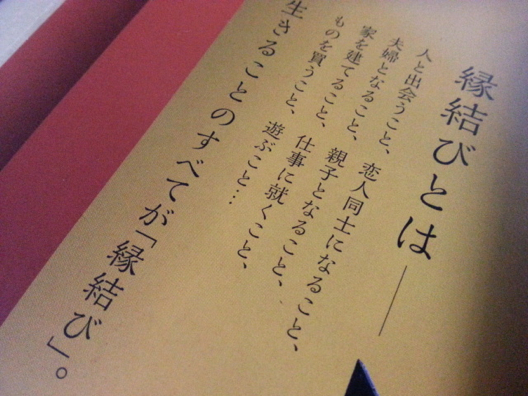 縁結びとは――
人と出会うこと、恋人同士になること、
夫婦となること、親子となること、
家を建てること、仕事に就くこと、
ものを買うこと、遊ぶこと…
生きることのすべてが「縁結び」。